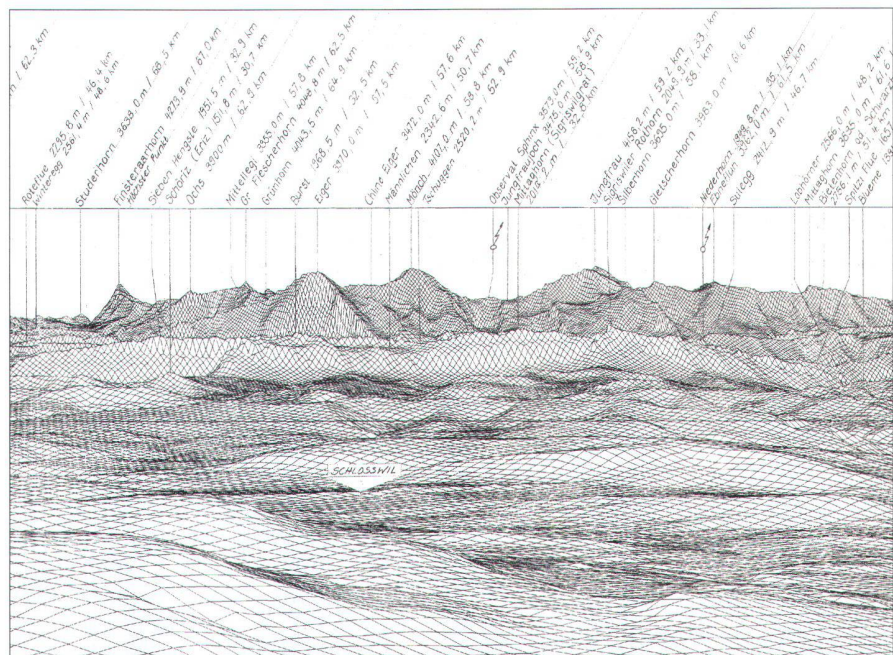 m / 62.3 km
Roteflue 2295.8 m / 46.4 km
Winteregg 2561.4 m / 48.6 km
Studerhorn 3638.0 m / 68.5 km
Finsteraarhorn 4273.9 m / 67.0 km
Höchster Punkt
Sieben Hengste 1951.5 m / 32.9 km
Schöriz (Eriz) 1511.8 m / 30.7 km
Ochs 3900 m / 62.9 km
Mittellegi 3355.0 m / 57.8 km
Gr. Fiescherhorn 4048.8 m / 62.5 km
Grünhorn 4043.5 m / 64.9 km
Burst 1968.5 m / 32.5 km
Eiger 3970.0 m / 57.5 km
Chline Eiger 3472.0 m / 57.6 km
Männlichen 2342.6 m / 50.7 km
Mönch 4107.0 m / 58.8 km
Tschuggen 2520.2 m / 52.9 km
Observat. Sphinx 3573.0 m / 59.2 km
Jungfraujoch 3475.0 m / 58.9 km
Mittaghorn (Sigriswilgrat)
2013.2 m / 32.8 km
Jungfrau 4158.2 m / 59.2 km
Sigriswiler Rothorn 2049.9 m / 33.1 km
Silberhorn 3695.0 m / 58.1 km
Gletscherhorn 3983.0 m / 61.6 km
Niederhorn
Ebnefluh
Sulegg 2412.9 m / 46.7 km
Lobhörner 2566.0 m / 48.2 km
Mittaghorn
2756.1 m
Spitzi Flue
Bueme
SCHLOSSWIL